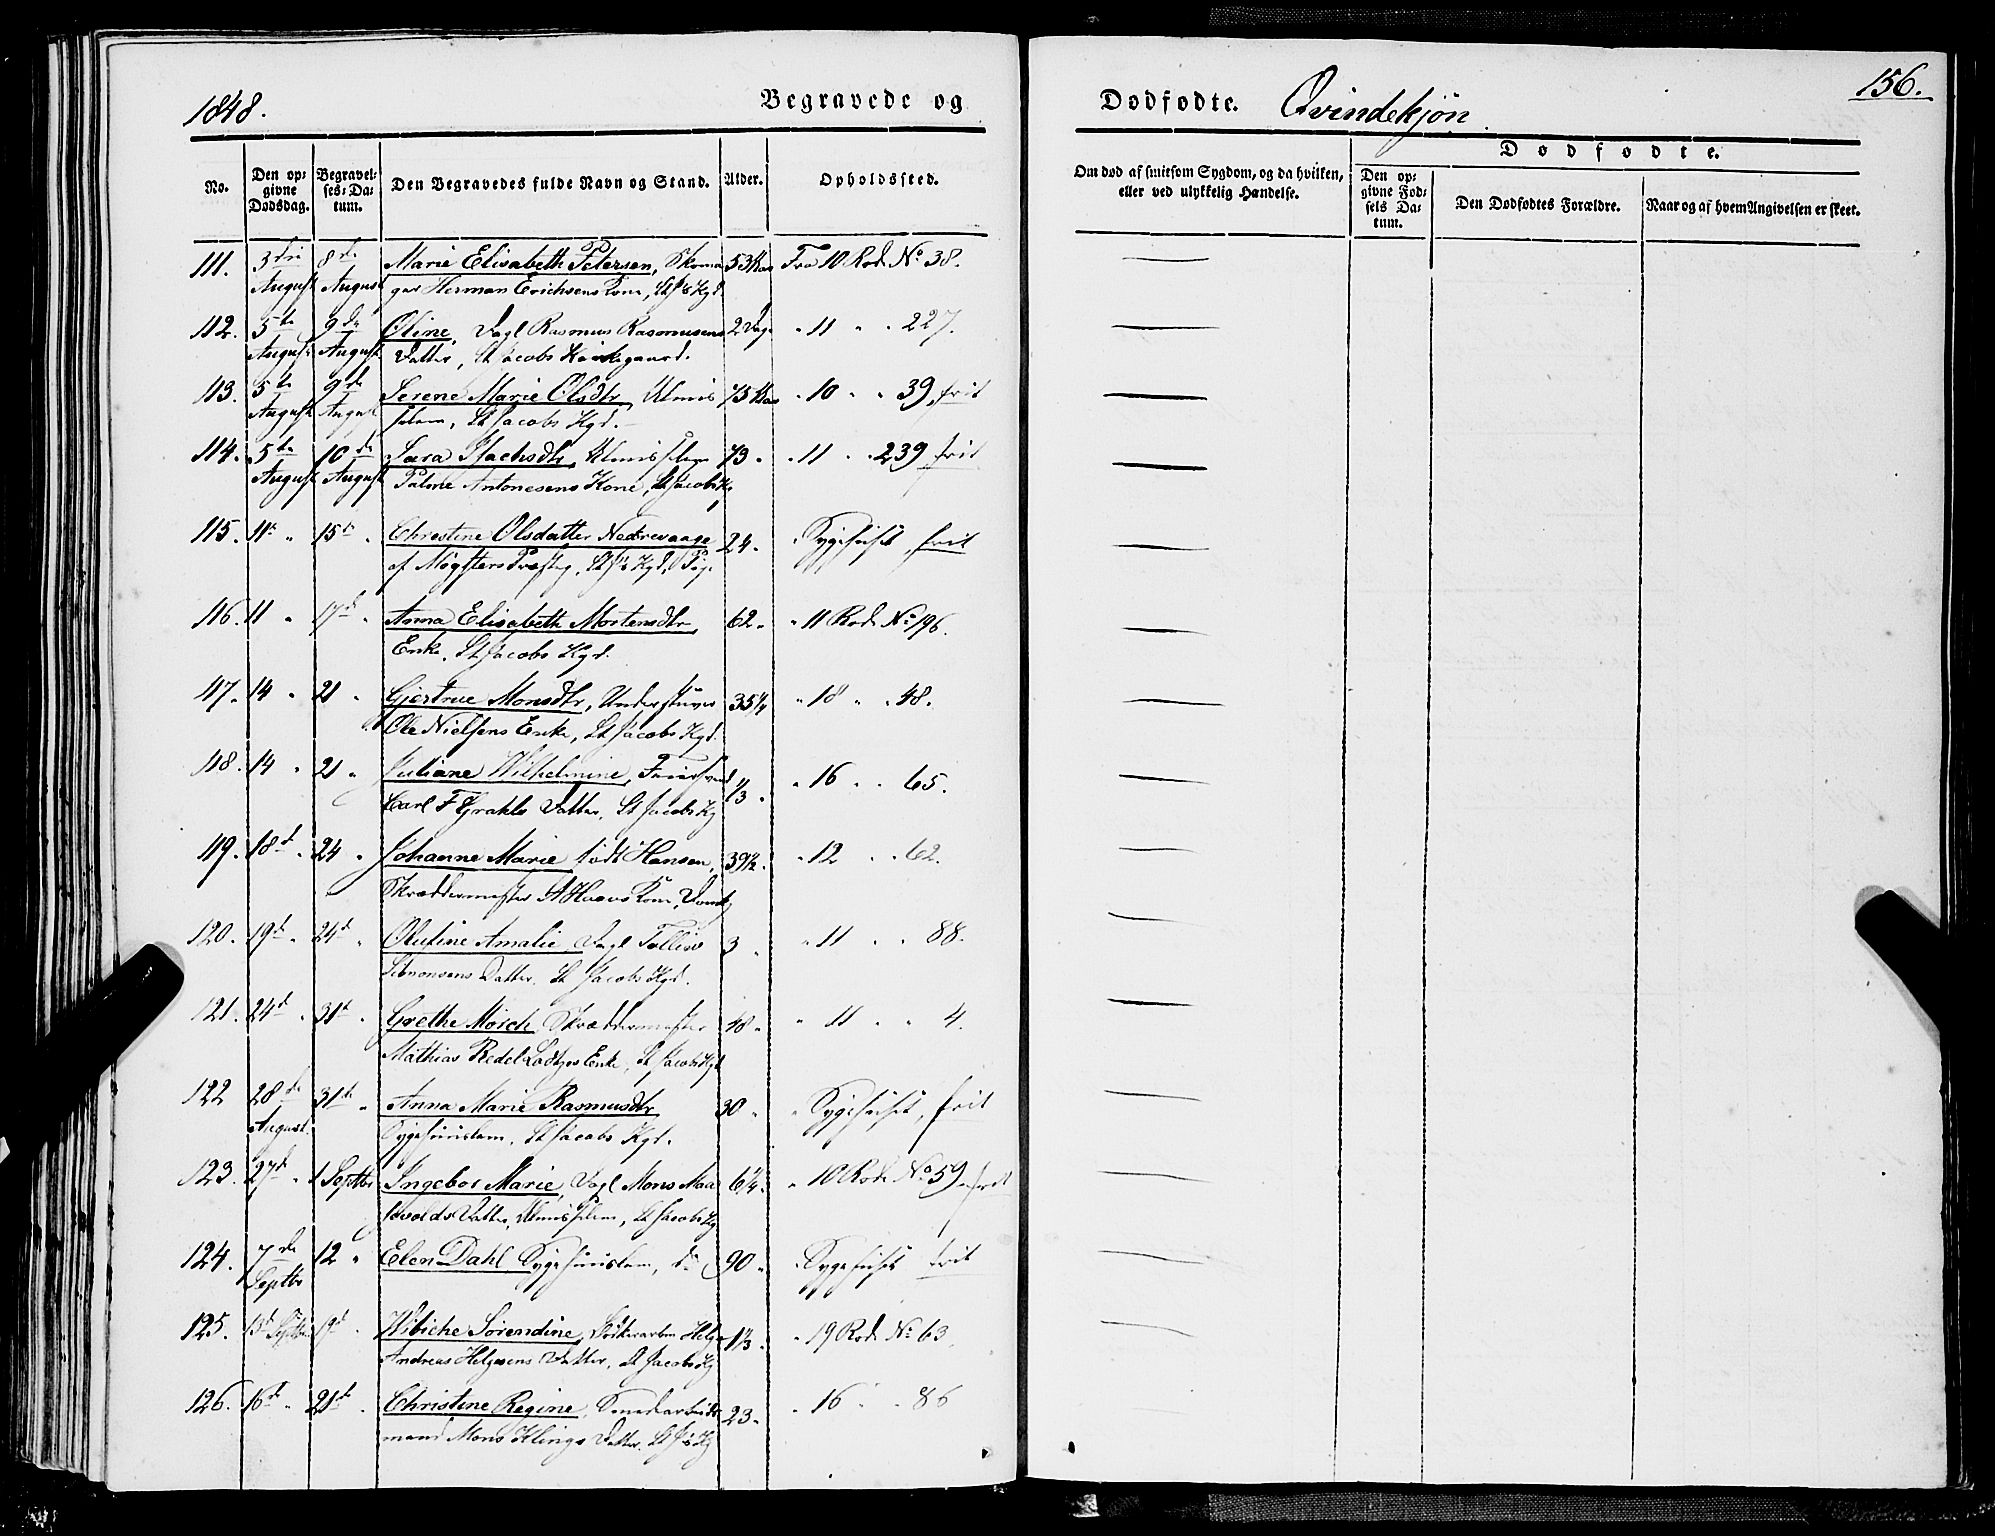 1848.
Begravede og
Dødfødte. Qvindekjøn
156.
No.
Den opgivne Dødsdag.
Begravelses-Datum.
Den Begravedes fulde Navn og Stand.
Alder.
Opholdssted.
Om død af smitsom Sygdom, og da hvilken, eller ved ulykkelig Hændelse.
Dødfødte.
Den opgivne Fødsels Datum.
Den Dødfødtes Forældre.
Naar og af hvem Angivelsen er skeet.
111. 3die 8de Marie Elisabeth Petersen, Skoma 53 Aar Fra 10 Rod. No 38.
August August ger Herman Erichsens Kone, St J's Kgd
112. 5te 9de Oline, Dagl Rasmus Rasmusens 2 Dage " 11 " " 227.
August August Datter, St Jacobs Kirkegaard.
113. 5te 9de Serene Marie Olsdtr, Almis 75 Aar " 10 " " 39, frit
August August lem, St Jacobs Kgd.
114. 5te 10de Sara Isachsdtr, Almisslem 73 " " 11 " " 239 frit
August August Antonesens Kone, St Jacobs K
115. 11te " 15de " Christine Olsdatter Nedrevaage 24 " " Sygehuset, frit
af Møgsters Præsteg, St J's Kgd, Pige
116. 11 " 17de " Anna Elisabeth Mortensdtr, 62 " " 11 Rod. No 196.
Enke, St Jacobs Kgd.
117. 14 " 21 " Gjertrue Monsdtr, 35¼ " 18 " " 48.
Ole Nielsens Enke, St Jacobs Kgd.
118. 14 " 21 " Juliane Wilhelmine, ⅓ " " 16 " " 65.
Carl F Grahls Datter, St Jacobs Kg
119. 18de " 24 " Johanne Marie født Hansen, 39½ " " 12 " " 62.
Skræddermester Kone,
120. 19de " 24de " Olufine Amalie, Dagl 3 " " 11 " " 88.
Simonsens Datter, St Jacobs Kgd.
121. 24de " 31te " Grethe Mosch, Skræddermester 48 " " 11 " " 4.
Mathias Enke, St Jacobs Kgd
122 28de 31te " Anna Marie Rasmusdtr 30 " " Sygehuset, frit
August. Sygehuuslem, St Jacobs Kgd.
123. 27de " 1 Septbr Ingebor Marie, Dagl Mons Maa 6¼ " " 10 Rod. No 59, frit
Datter, Almisslem, St Jacobs Kg
124. 7de 12 " Elen Dahl Sygehuuslem, do 90 " " Sygehuset frit
Septbr
125. 13de Septbr 19de " Wibiche Sørendine, 1⅓ " " 19 Rod. No 63.
Andreas Helgesens Datter, St Jacobs Kg
126. 16de " 21de " Christine Regine, Smedearbeids 23 " " 16 " " 86
mand Mons Klings Datter, St J's Kg